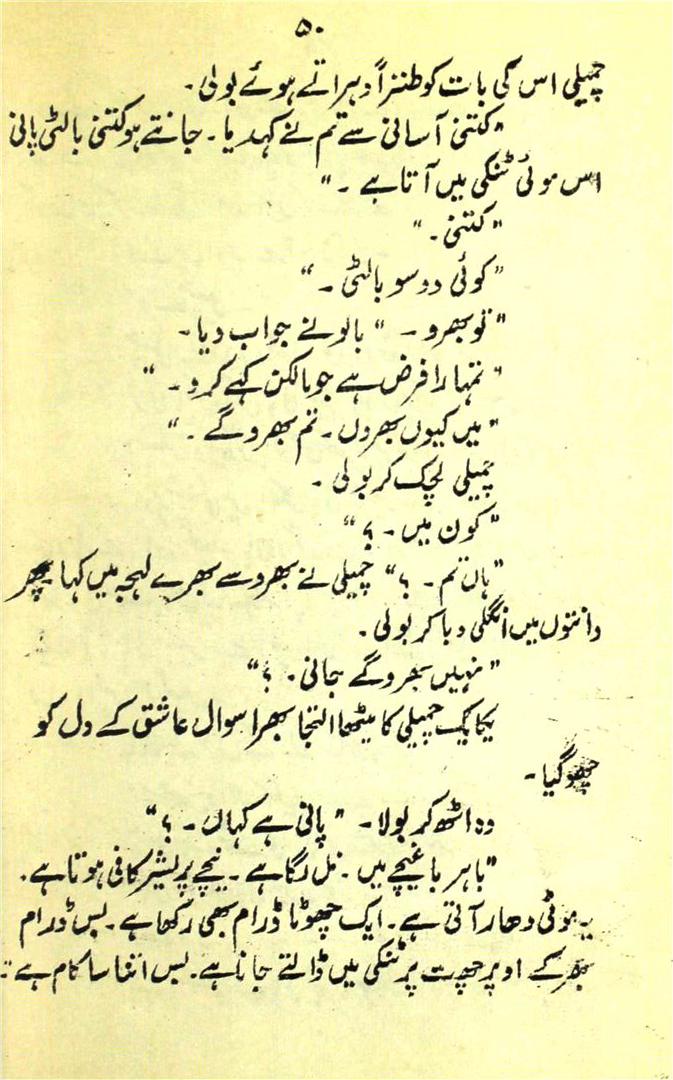 ۵۰
چمپیلی اس کی بات کو طنزاً دہراتے ہوئے بولی۔
"کتنی آسانی سے تم نے کہدیا۔ جانتے ہو کتنی بالٹی پانی
اس موئی ٹنکی میں آتا ہے ۔"
"کتنی۔"
"کوئی دو سو بالٹی ۔"
"تو بھرو۔ " بالو نے جواب دیا۔
"تمہارا فرض ہے جو مالکن کہے کرو۔ "
"میں کیوں بھروں۔ تم بھرو گے ۔"
چمپیلی لچک کر بولی ۔
"کون میں ۔ ؟"
"ہاں تم ۔ ؟" چمپیلی نے بھروسے بھرے لہجہ میں کہا پھر
دانتوں میں انگلی دبا کر بولی۔
"نہیں بھرو گے جانی۔ ؟"
یکایک چمپیلی کا میٹھا التجا بھرا سوال عاشق کے دل کو
چھو گیا ۔
وہ اٹھ کر بولا۔ "پانی ہے کہاں ۔ ؟"
"باہر باغیچے میں ۔ نل لگا ہے ۔ نیچے پریشر کافی ہوتا ہے۔
یہ موٹی دھار آتی ہے۔ ایک چھوٹا ڈرام بھی رکھا ہے۔ بس ڈرام
بھر کے اوپر چھت پر ٹنکی میں ڈالتے جانا ہے۔ بس اتنا سا کام ہے ۔"